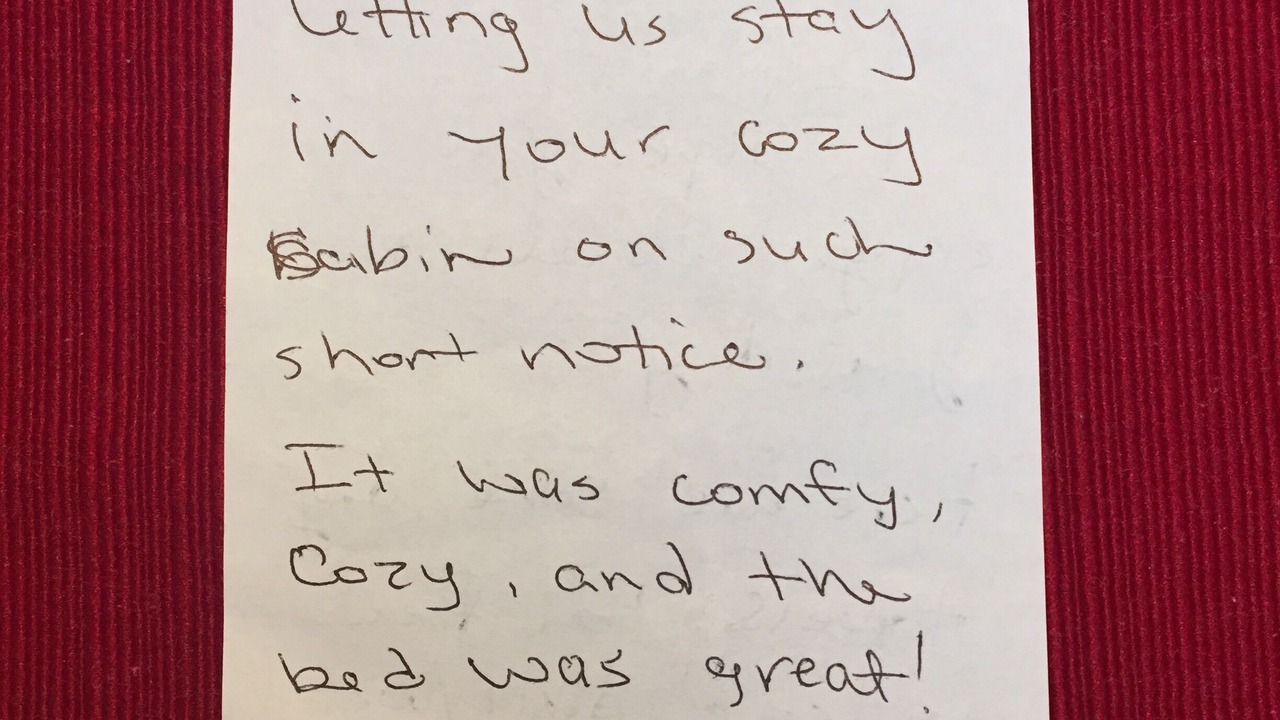 letting us stay
in your cozy
cabin on such
short notice.
It was comfy,
Cozy, and the
bed was great!